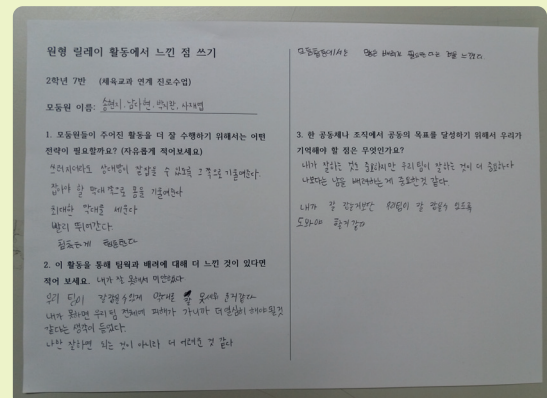 원형 릴레이 활동에서 느낀 점 쓰기
2학년 7반 (체육교과 연계 진로수업)
모둠원 이름: 송현지, 남다현,
1. 모둠원들이 주어진 활동을 더 잘 수행하기 위해서는 어떤
전략이 필요할까요? (자유롭게 적어보세요)
쓰러지더라도 상대방이 잡을 수 있도록 그쪽으로 기울여준다.
잡아야 할 막대 쪽으로 몸을 기울여준다
최대한 막대를 세운다
빨리 뛰어간다.
2. 이 활동을 통해 팀웍과 배려에 대해 더 느낀 것이 있다면
적어 보세요. 내가 잘 못해서 미안했다
우리 팀이 잘 잡을 수 있게 막대를 잘
내가 못하면 우리 팀 전체에 피해가 가니까 더 열심히 해야 될 것
같다는 생각이 들었다.
나만 잘하면 되는 것이 아니라 더 어려운 것 같다
많은 배려가 필요하다는 것을 느꼈다
3. 한 공동체나 조직에서 공동의 목표를 달성하기 위해서 우리가
기억해야 할 점은 무엇인가요?
내가 잘하는 것도 중요하지만 우리 팀이 잘하는 것이 더 중요하다
나보다는 남을 배려하는 게 중요한 것 같다.
내가 잘 우리팀이 잘 잡을 수 있도록
도와야 할 거 같다